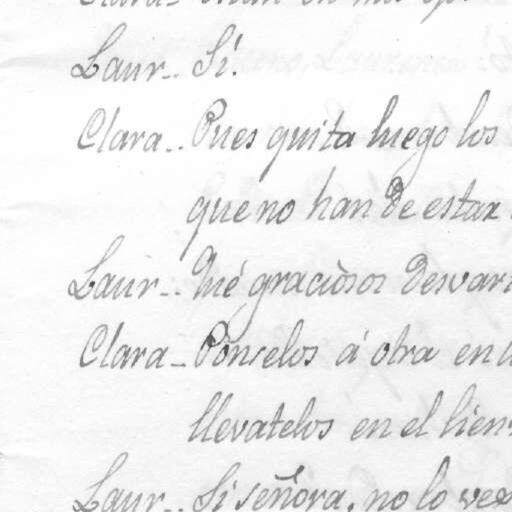 Laur-. Sí.
Clara-. Pues quita luego los
que no han de estar
Laur-. Qué graciosos desvari
Clara- Ponselos á otra en
llevatelos en el lien
Laur-. Si señora, no lo ves